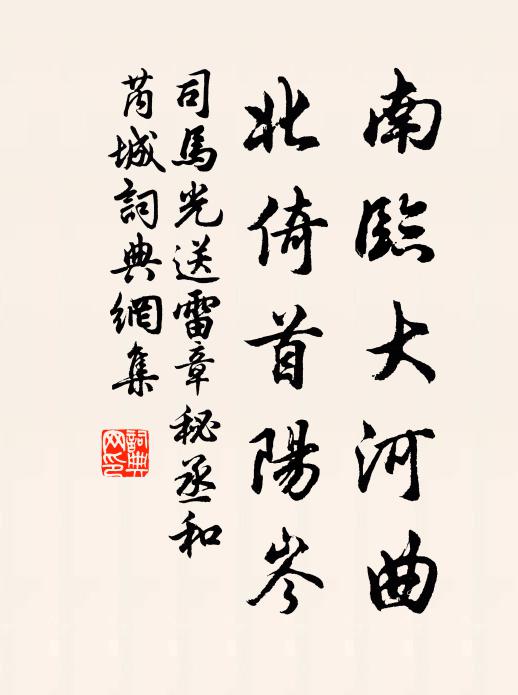 南臨大河曲
北倚首陽岑
司馬光送雷章秘丞和
芮城詞典網集
詞典
网印